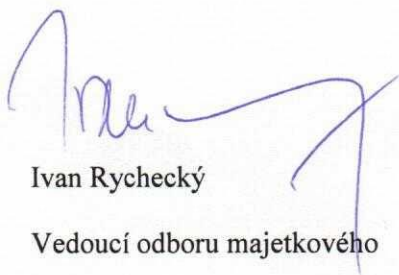 Ivan Rychecký
Vedoucí odboru majetkového